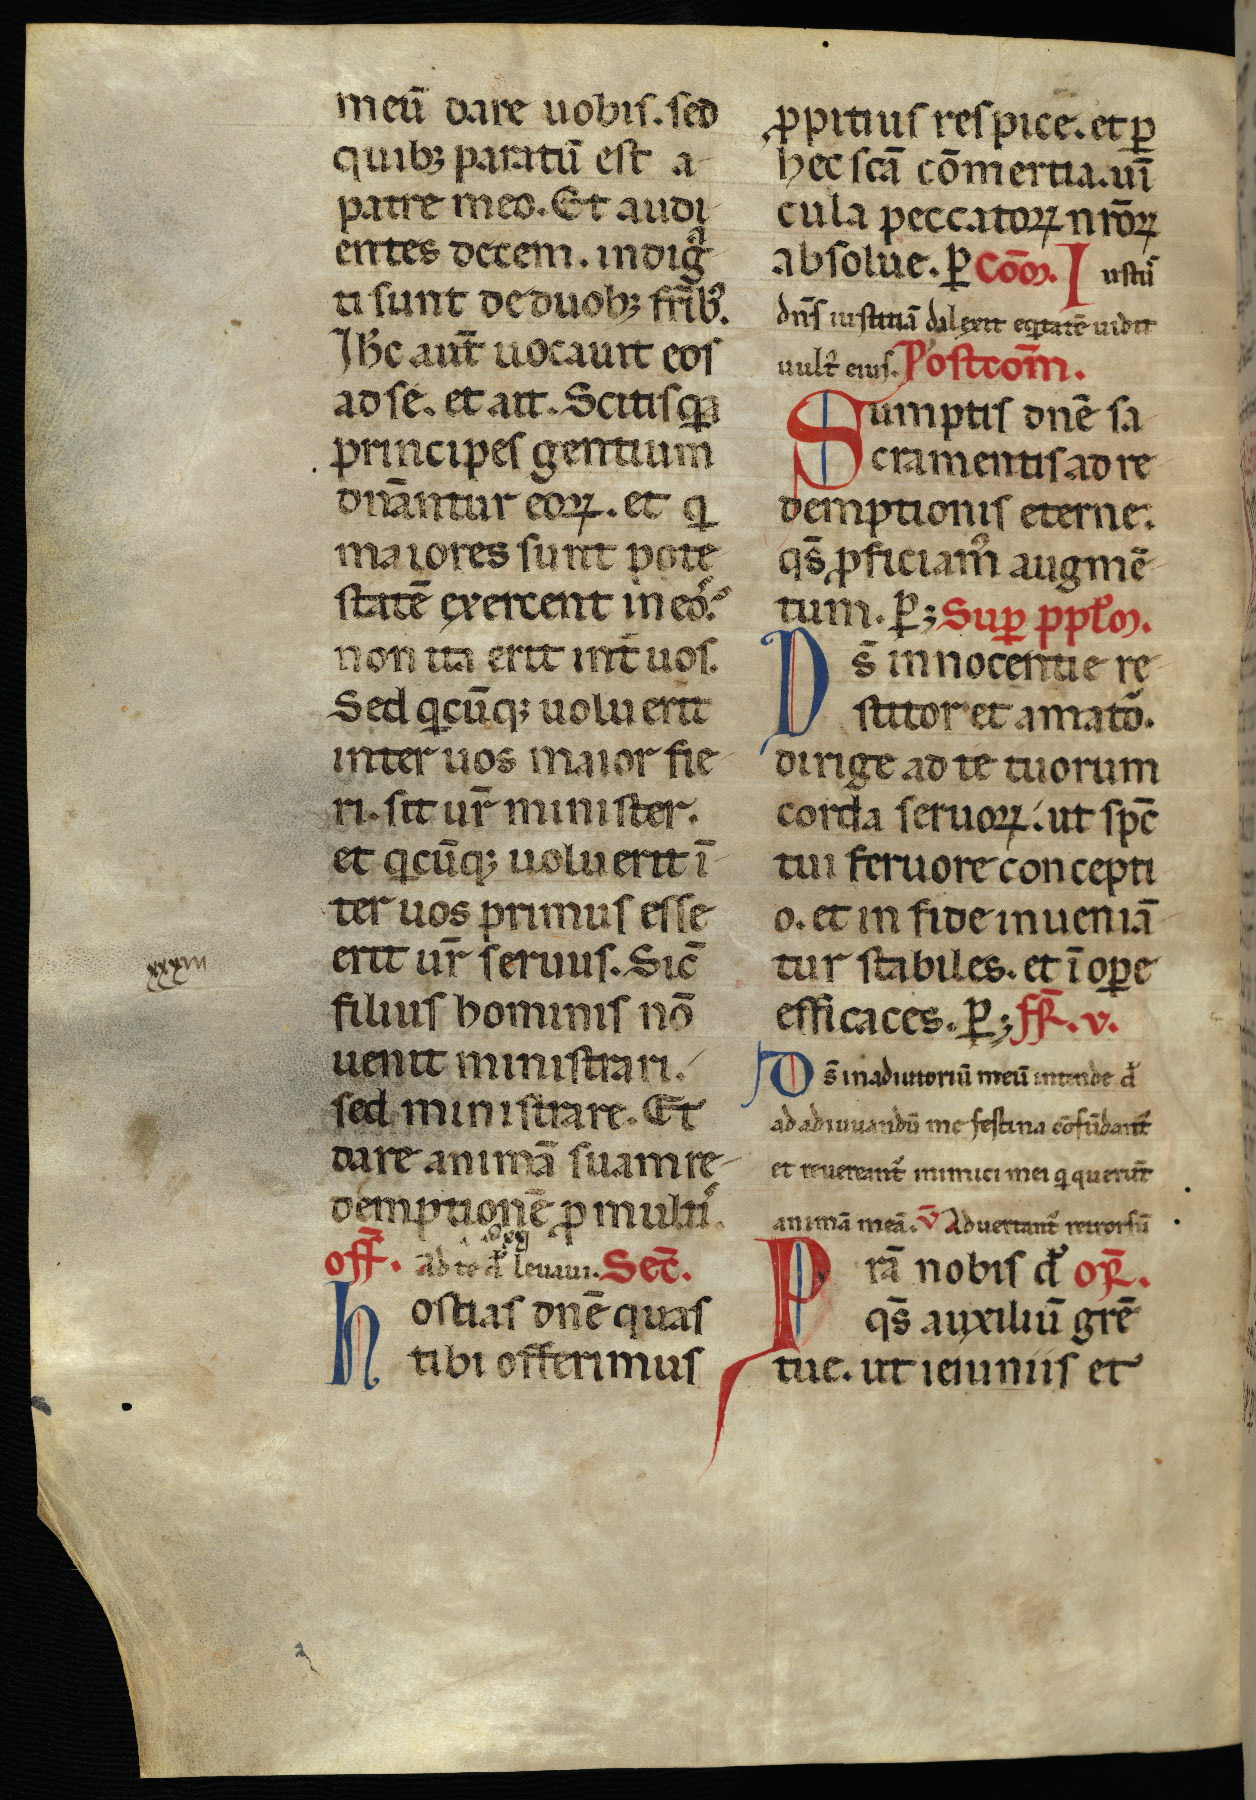 meū dare uobis. sed
quibꝫ paratū est a
patre meo. Et audi
entes decem. indigᵃ
ti sunt de duobꝫ fr̄ibꝰ.
Ihc aut̄ uocauit eos
ad se. et ait. Scitis qa
principes gentium
dn̄antur eoꝝ. et qi
maiores sunt pote
statē exercent in eoˢ.
non ita erit int̄ uos.
Sed qicūqꝫ uoluerit
inter uos maior fie
ri. sit ur̄ minister.
et qicūqꝫ uoluerit ī
ter uos primus esse
erit ur̄ seruus. Sic̄
filius hominis nō
uenit ministrari.
sed ministrare. Et
dare animā suam re
demptionē ꝓ multiˢ.
xxxiiii
off̄. Ad te d. leuaui. Sec̄.
Hostias dn̄e quas
tibi offerimus
ꝓpitius respice. et ꝑ
hec sc̄ā cōmertia. uī
cula peccatoꝝ nr̄oꝝ
absolue. ꝑ Cōō. Iustuˢ
dn̄s iustitiā dilexit eqitatē uidit
uult᷑ eius. Postcom̄.
Sumptis dn̄e sa
cramentis ad re
demptionis eterne.
qs̄ ꝓficiamꝰ augmē
tum. ꝑ; Suꝑ ppl̄m.
Ds̄ innocentie re
stitor et amatoʳ.
dirige ad te tuorum
corda seruoꝝ. ut sp̄c
tui feruore concepti
o. et in fide inueniā
tur stabiles. et ī oꝑe
efficaces. ꝑ; fr̄. v.
Ds̄ in adiutoriū meū intende d.
ad adiuuandū me festina cōfūdant᷑
et reuereant᷑ inimici mei qi querūt
animā meā. v̄ Aduertant᷑ retrorsū
Prā nobis d. or̄.
qs̄ auxiliū grē
tue. ut ieiuniis et